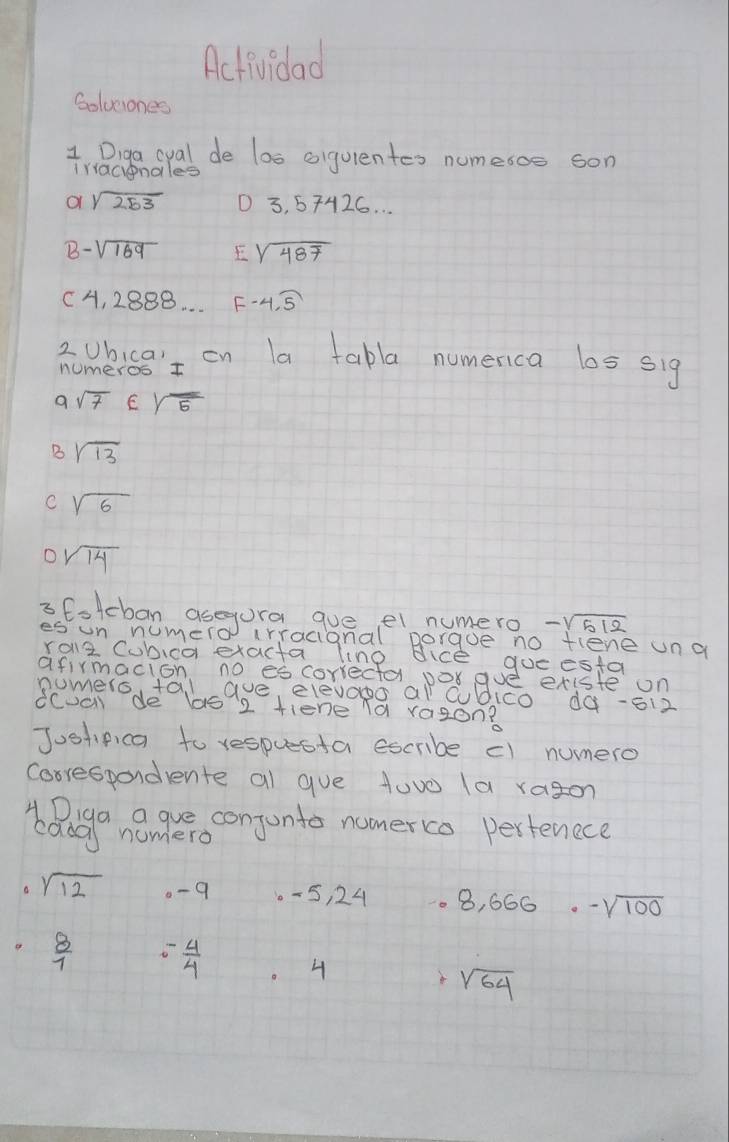 Actividad
Soluciones
1 Diga cual de los siguientes numeros son
irracionales
a √253 D 3,57426...
B -√169 E √487
C 4,2888... F -4,5
2 Ubica en la tabla numerica los sig
numeros I
a √7 E √5
B √13
C √6
D √14
3 Esteban asegura que el numero -√512
es un numero irracional porque no tiene una
raiz cubica exacta lina dice que esta
afirmacion no es correcta por que existe un
numero tal que elevado al cubico da -512
dcual de las 2 tiene la razon?
Justifica tu respuesta escribe el numero
correspondiente al que tuvo la razon
4 Diga a que conjunto numerico pertenece
cada numero
. √12 . -9 . -5,24 . 8,666 . -√100
. 8/1 . -4/4 . 4 . √64